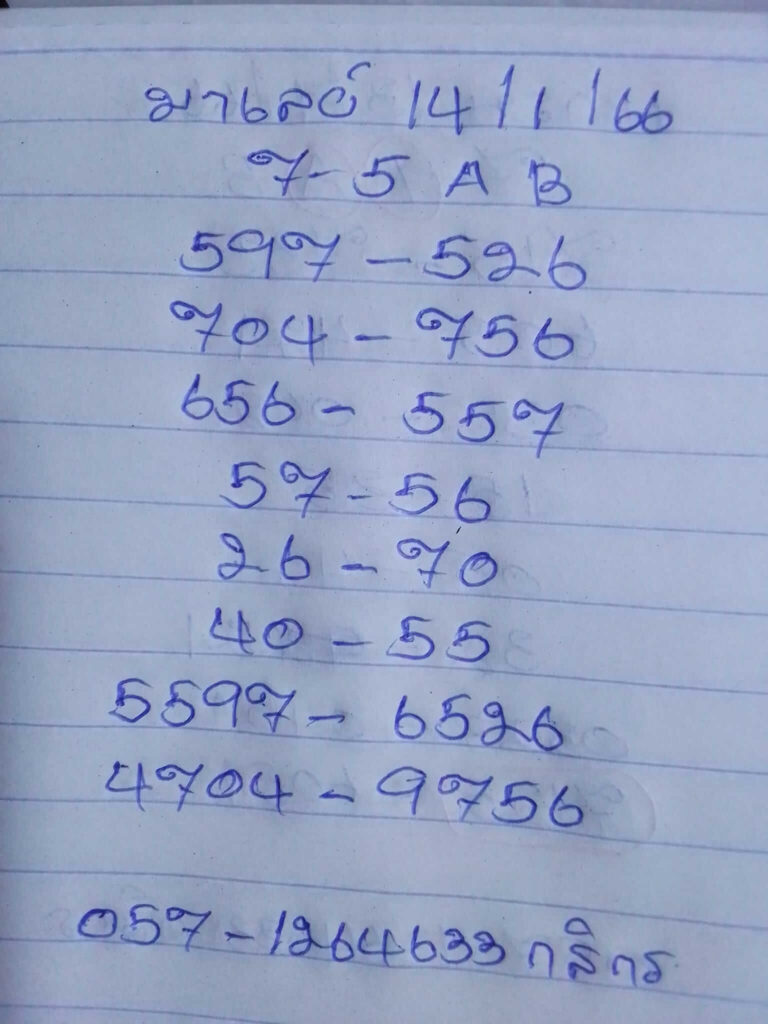 มาเลย์ 14/1/66
7-5 A B
597-526
704-756
656-557
57-56
26-70
40-55
5597-6526
4704-9756
057-1264633 กสิกร